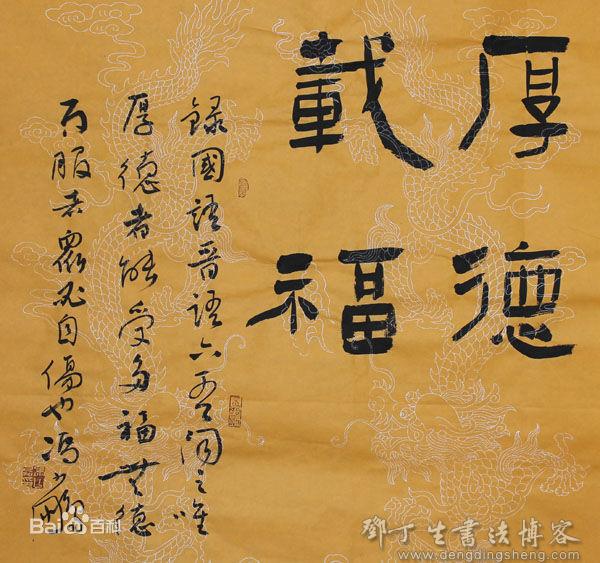 厚德
載福
錄國語晉語六吾聞之唯
厚德者能受多福無德
而服者眾必自傷也馮
Bai百科
鄧丁生書法博客
www.dengdingsheng.com